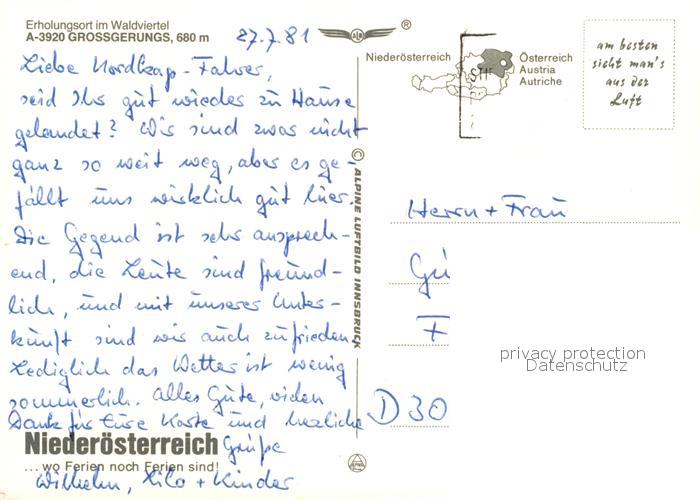 Erholungsort im Waldviertel
A-3920 GROSSGERUNGS, 680 m
27.7.81
Liebe Nordkap-Fahrer,
seid Ihr gut wieder zu Hause
gelandet? Wir sind zwar nicht
ganz so weit weg, aber es ge-
fällt uns wirklich gut hier.
Die Gegend ist sehr ansprech-
end, die Leute sind freund-
lich, und mit unserer Unter-
kunft sind wir auch zufrieden.
Lediglich das Wetter ist wenig
sommerlich. Alles Gute, vielen
Dank für Eure Karte und herzliche
Grüße
Wilhelm, Lilo + Kinder
Niederösterreich
... wo Ferien noch Ferien sind!
®
© ALPINE LUFTBILD INNSBRUCK
Niederösterreich
Österreich
Austria
Autriche
am besten
sieht man's
aus der
Luft
Herrn + Frau
Gü
F
D 30
privacy protection
Datenschutz